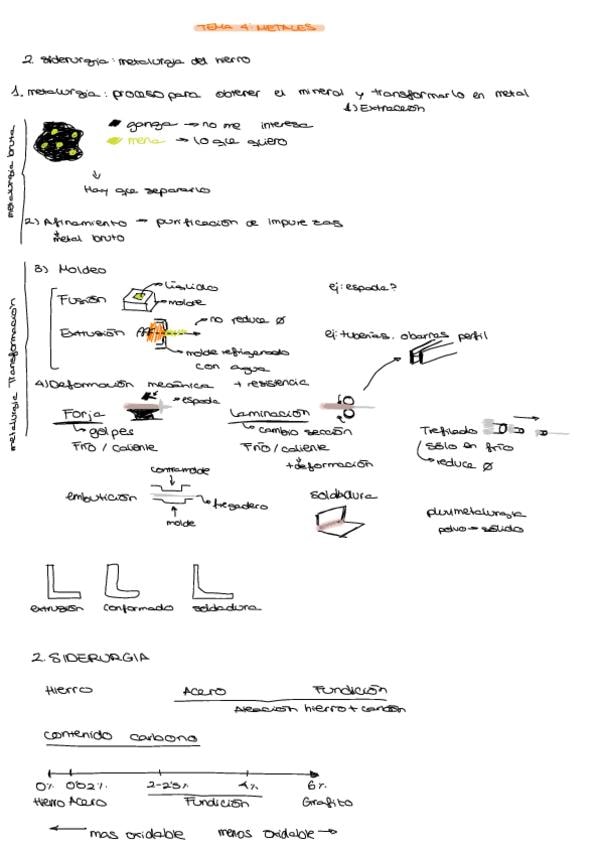 TEMA 4: METALES
2. Siderurgia: metalurgia del hierro
1. metalurgia: proceso para obtener el mineral y transformarlo en metal
1) Extracción
metalurgia bruta
ganga → no me interesa
mena → lo que quiero
Hay que separarlo
2) Afinamiento → purificación de impurezas
metal bruto
metalurgia Transformación
3) Moldeo
líquido
Fusión
molde
ej: espada?
no reduce Ø
Extrusión
ej: tuberías. o barras perfil
molde refrigerado
con agua
4) Deformación mecánica + resistencia
espada
Forja
golpes
Frío / caliente
Laminación
cambio sección
Frío / caliente
+ deformación
Trefilado
solo en frío
reduce Ø
contramolde
embutición
fregadero
molde
soldadura
pulvimetalurgia
polvo → sólido
extrusión conformado soldadura
2. SIDERURGIA
Hierro Acero Fundición
Aleación hierro + carbón
contenido carbono
0% 0'02% 2-2'5% 4% 6%
Hierro Acero Fundición Grafito
← mas oxidable menos oxidable →